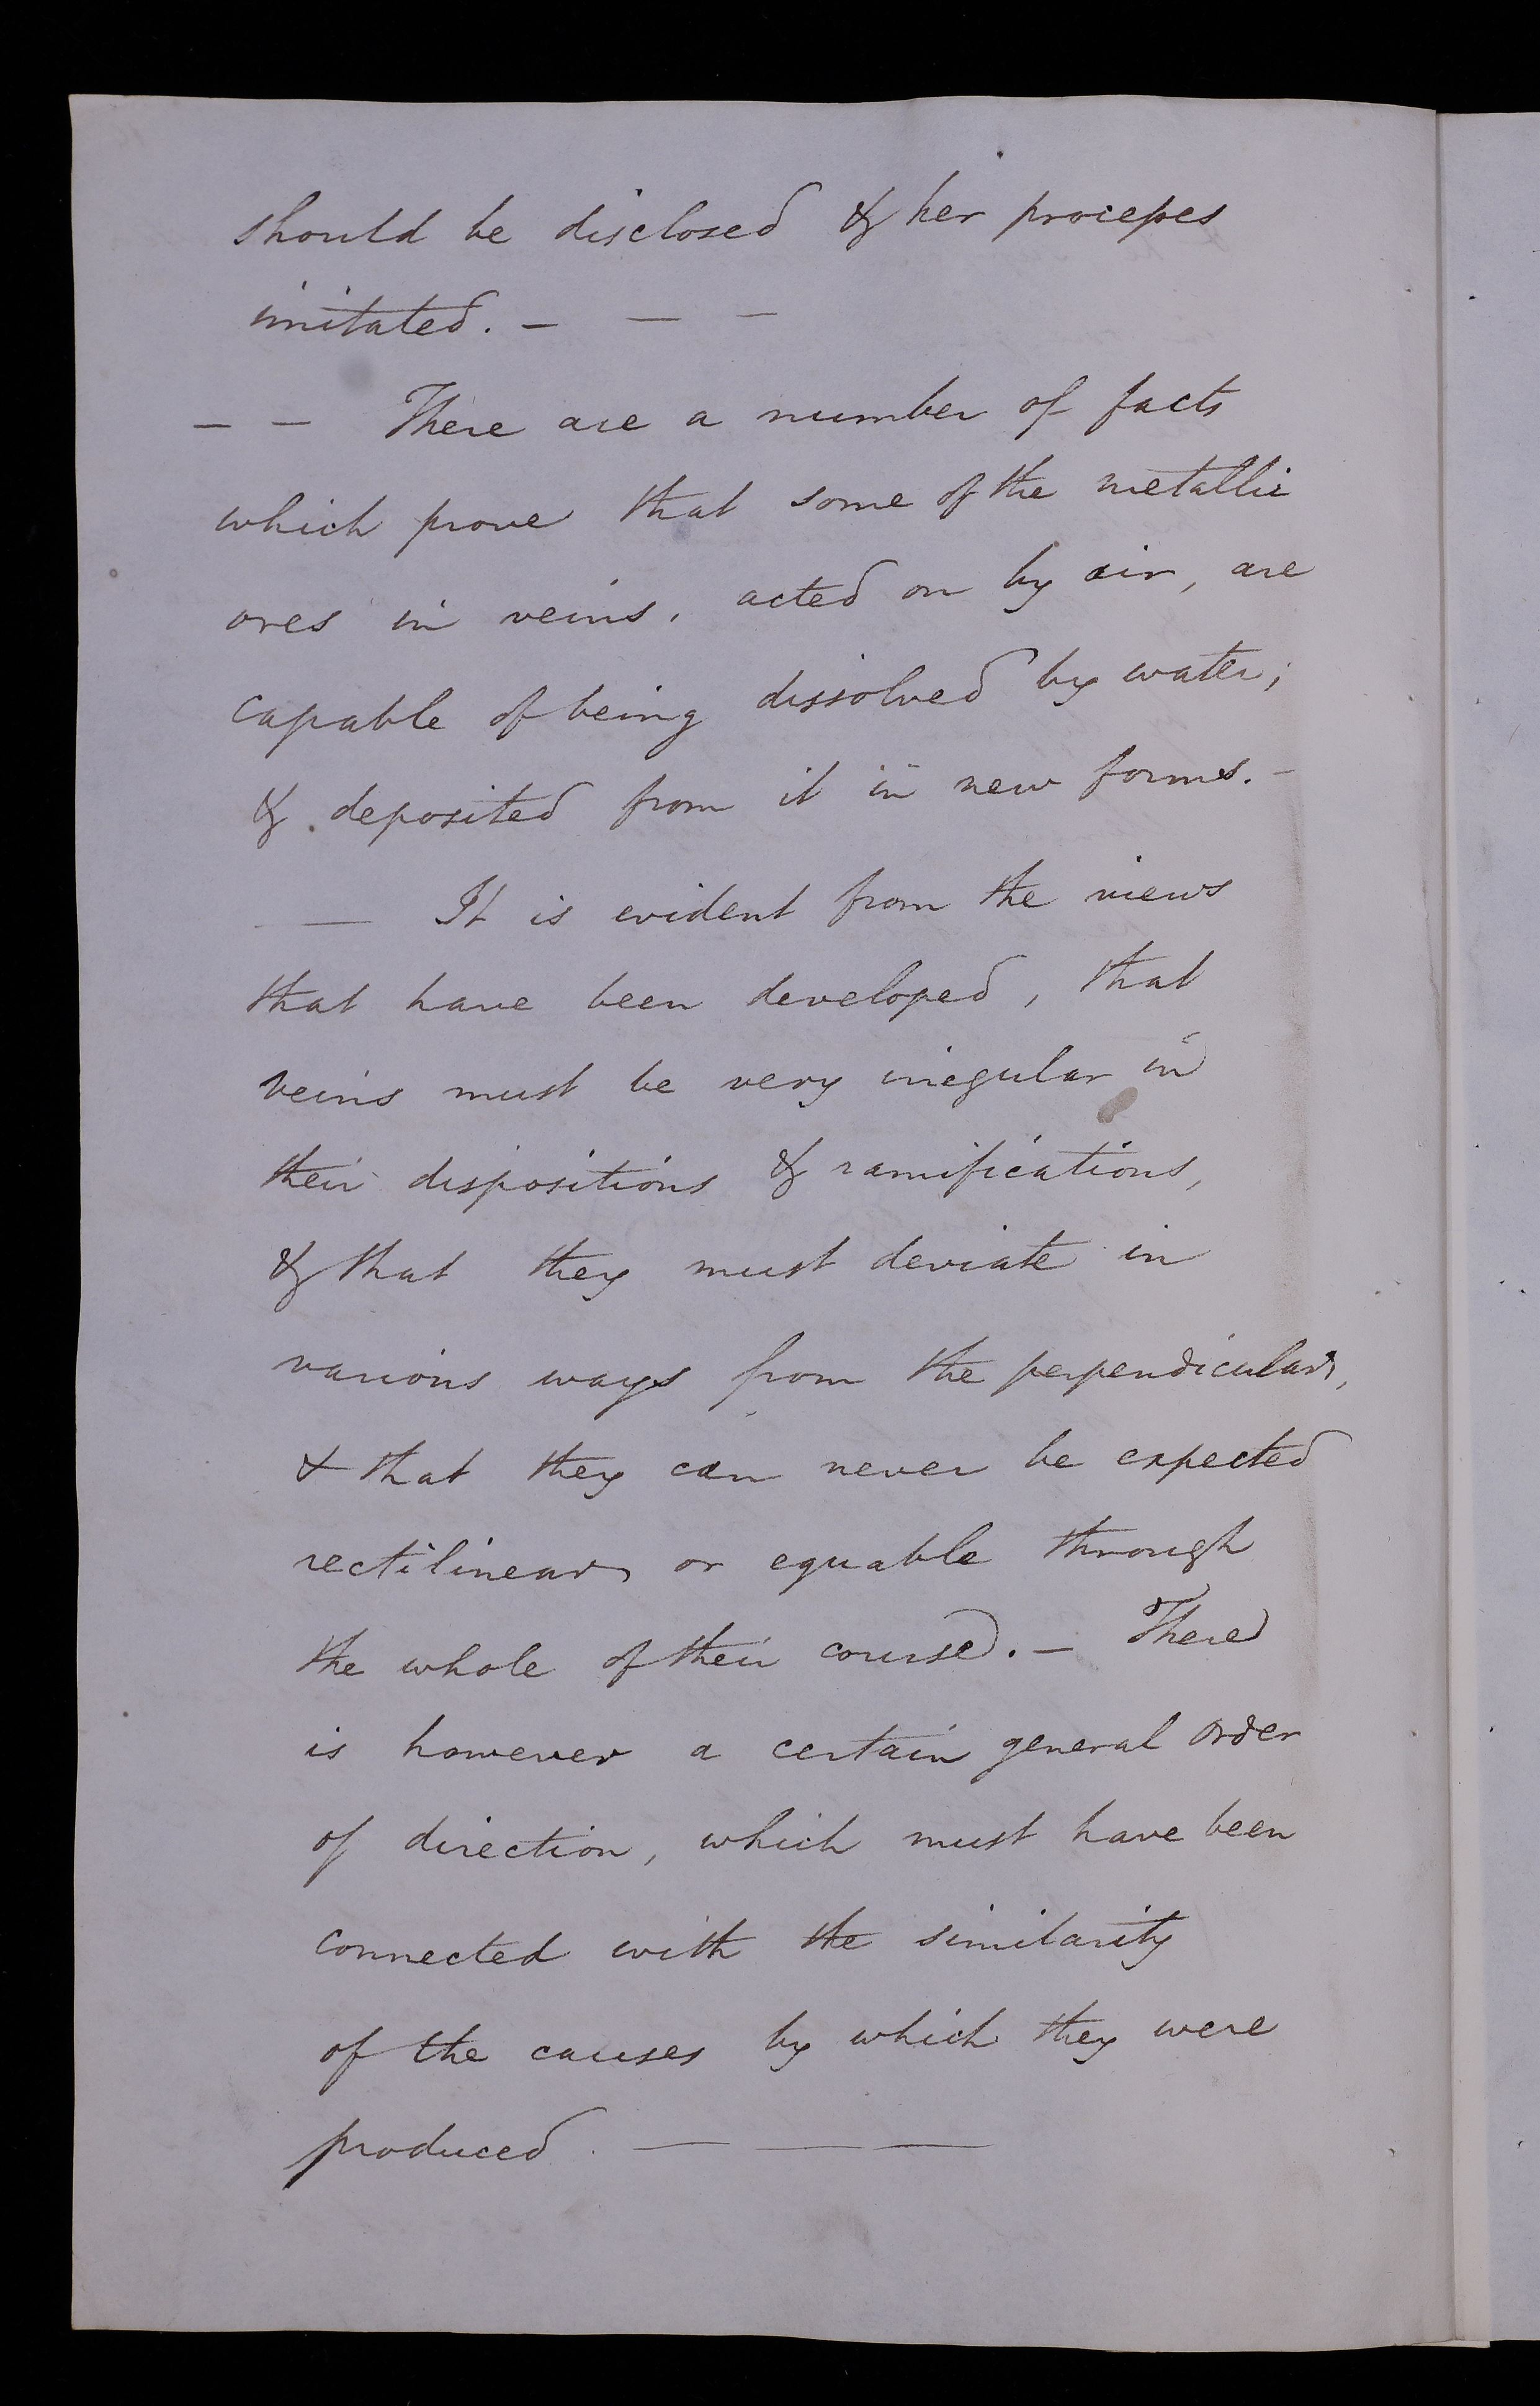 should be disclosed & her processes
imitated. — — —
— — There are a number of facts
which prove that some of the metallic
ores in veins, acted on by air, are
capable of being dissolved by water;
& deposited from it in new forms. —
— It is evident from the views
that have been developed, that
veins must be very irregular in
their dispositions & ramifications,
& that they must deviate in
various ways from the perpendicular,
& that they can never be expected
rectilinear or equable through
the whole of their course. — There
is however a certain general order
of direction, which must have been
connected with the similarity
of the causes by which they were
produced. — — —